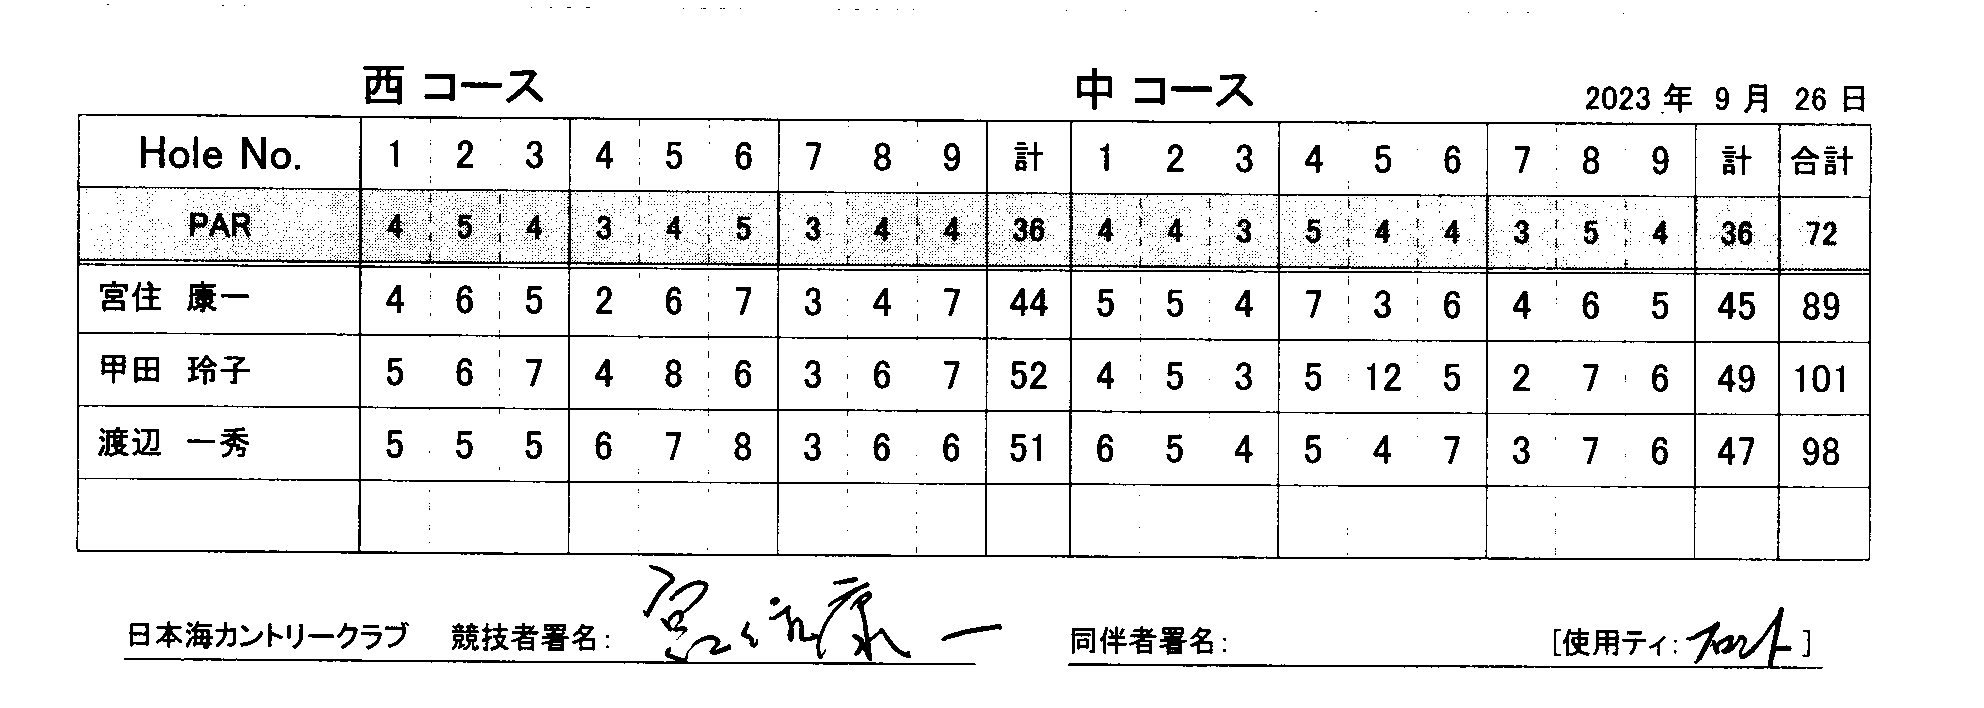 西 コース 中 コース 2023 年 9 月 26 日
Hole No. 1 2 3 4 5 6 7 8 9 計 1 2 3 4 5 6 7 8 9 計 合計
PAR 4 5 4 3 4 5 3 4 4 36 4 4 3 5 4 4 3 5 4 36 72
宮住 康一 4 6 5 2 6 7 3 4 7 44 5 5 4 7 3 6 4 6 5 45 89
甲田 玲子 5 6 7 4 8 6 3 6 7 52 4 5 3 5 12 5 2 7 6 49 101
渡辺 一秀 5 5 5 6 7 8 3 6 6 51 6 5 4 5 4 7 3 7 6 47 98
日本海カントリークラブ 競技者署名: 宮住康一 同伴者署名: [使用ティ: フロント ]